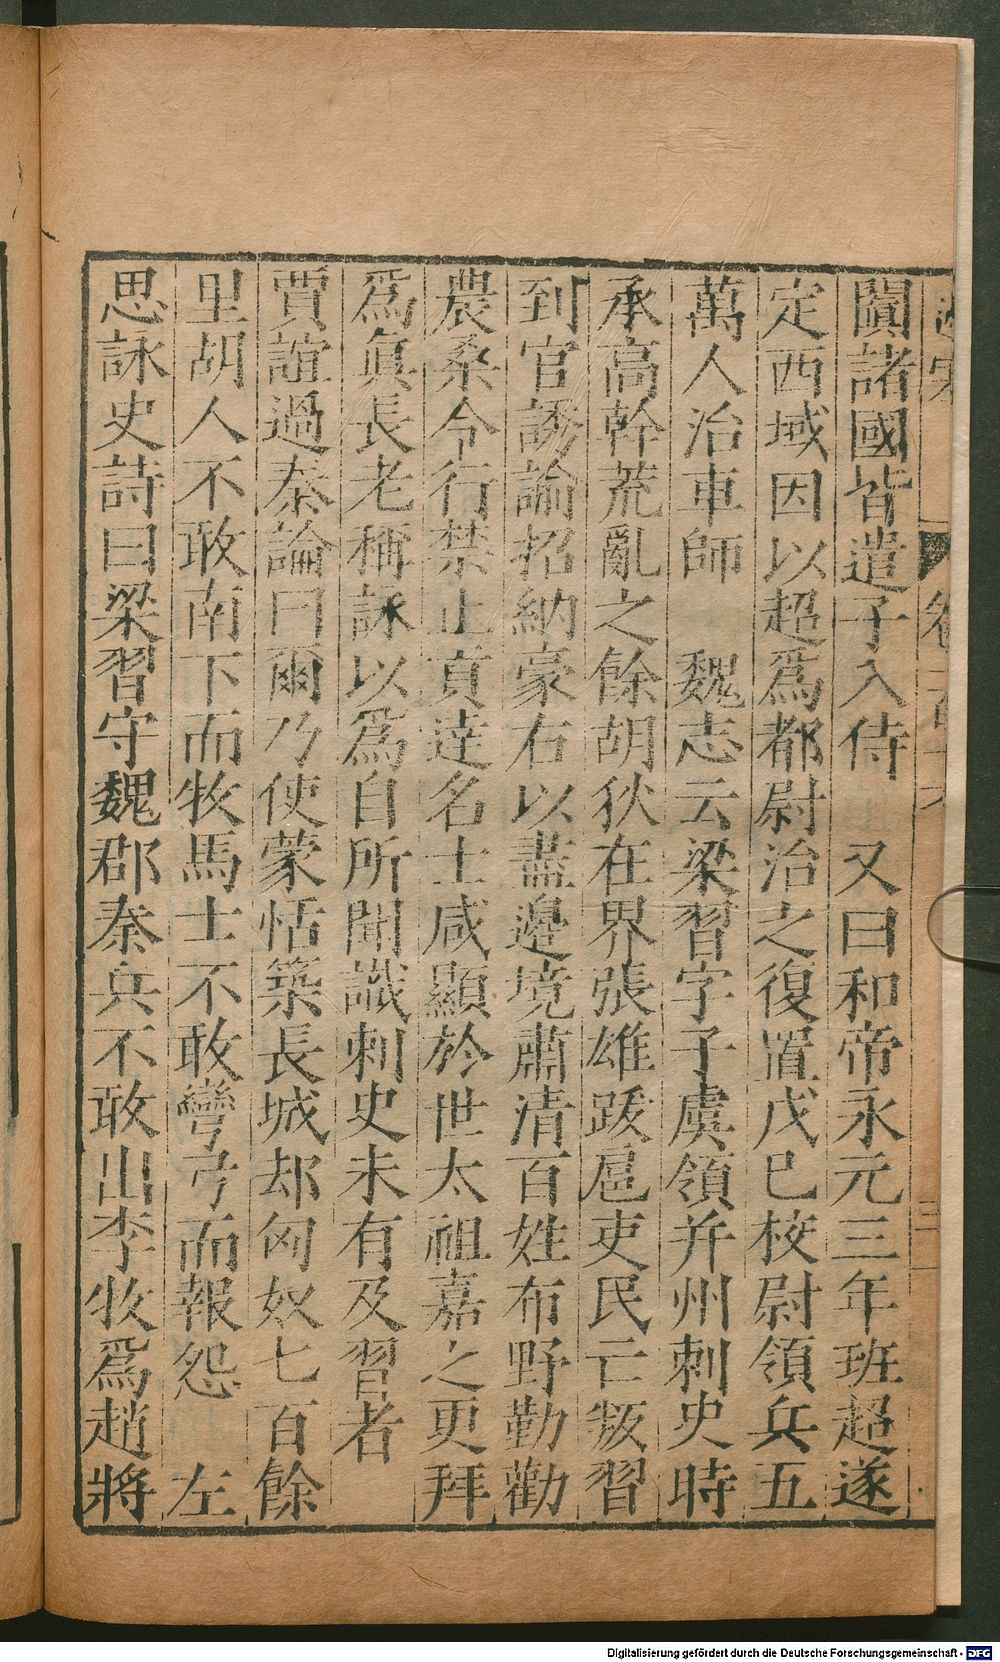 闐諸國皆遣子入侍　又曰和帝永元三年班超遂
定西域因以超爲都尉治之復置戊巳校尉領兵五
萬人治車師　魏志云梁習字子虞領并州刺史時
承高幹荒亂之餘胡狄在界張雄跋扈吏民亡叛習
到官誘諭招納豪右以盡邊境肅清百姓布野勤勸
農桑令行禁止貢達名士咸顯於世太祖嘉之更拜
爲眞長老稱詠以爲自所聞識刺史未有及習者
賈誼過秦論曰爾乃使蒙恬築長城却匈奴七百餘
里胡人不敢南下而牧馬士不敢彎弓而報怨　左
思詠史詩曰梁習守魏郡秦兵不敢出李牧爲趙將
Digitalisierung gefördert durch die Deutsche Forschungsgemeinschaft - DFG